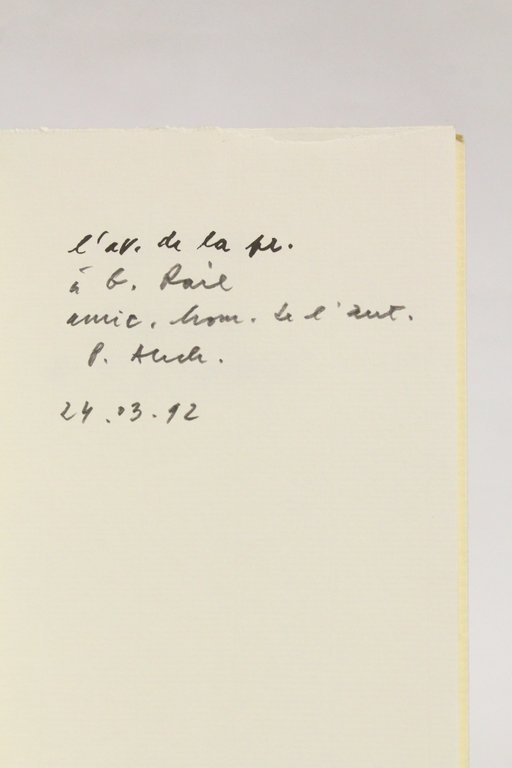 l'av. de la pr.
à G.
amic. hom. de l'aut.
P.
24.03.92